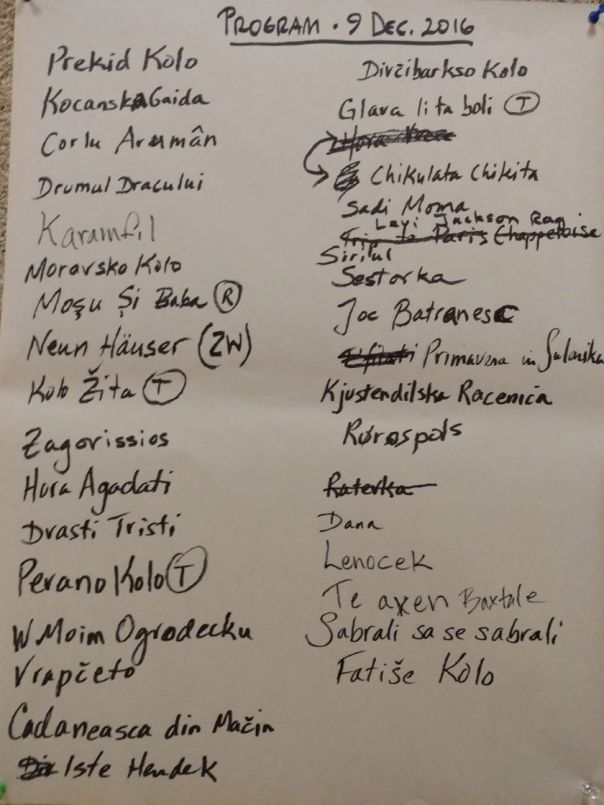 PROGRAM · 9 DEC. 2016
Prekid Kolo
Kocanska Gaida
Corlu Arumân
Drumul Dracului
Karamfil
Moravsko Kolo
Moşu Şi Baba (R)
Neun Häuser (ZW)
Kolo Žita (T)
Zagorissios
Hora Agadati
Drasti Tristi
Perano Kolo (T)
W Moim Ogrodecku
Vrapčeto
Cadaneasca din Mačin
Iste Hendek
Divčibarkso Kolo
Glava li ta boli (T)
Hora
Chikulata Chikita
Sadi Moma
Levi Jackson Rag
Trip to Paris Chappeloise
Sirilul
Sestorka
Joc Batranesc
Primavera in Salonika
Kjustendilska Racenica
Rørospols
Raterka
Dana
Lenocek
Te axen Baxtale
Sabrali sa se sabrali
Fatiše Kolo